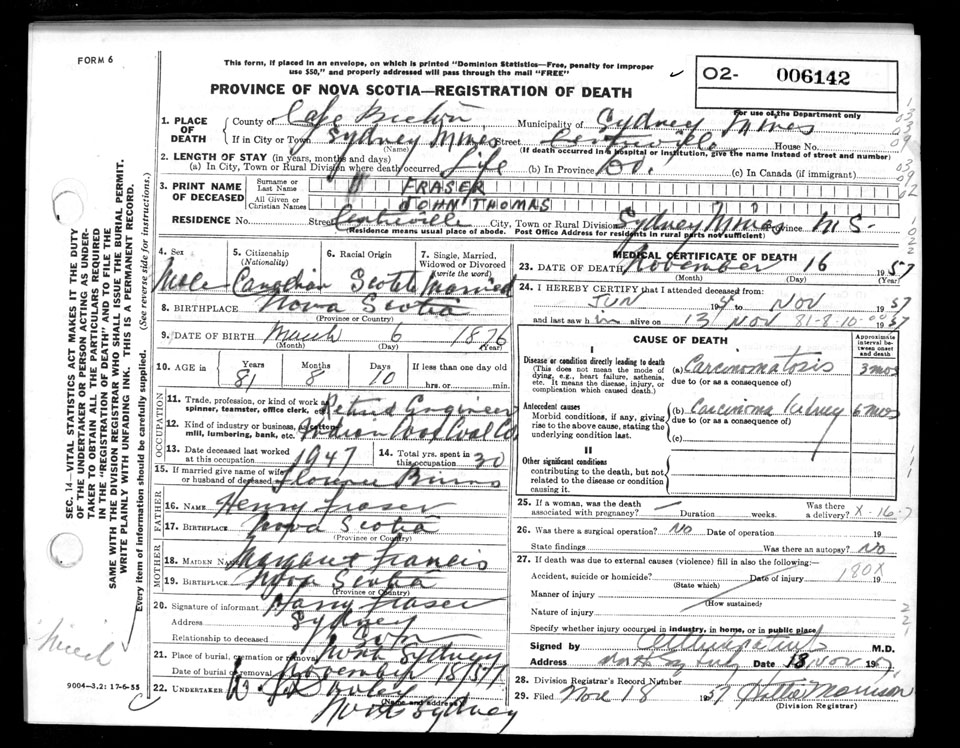 FORM 6
This form, if placed in an envelope, on which is printed "Dominion Statistics—Free, penalty for improper
use $50," and properly addressed will pass through the mail "FREE"
O2- 006142
PROVINCE OF NOVA SCOTIA—REGISTRATION OF DEATH
For use of the Department only
1. PLACE OF DEATH
County of Cape Breton Municipality of Sydney Mines
If in City or Town Sydney Mines Street Centreville House No.
(Name) (If death occurred in a hospital or institution, give the name instead of street and number)
2. LENGTH OF STAY (in years, months and days)
(a) In City, Town or Rural Division where death occurred Life (b) In Province Do. (c) In Canada (if immigrant)
3. PRINT NAME OF DECEASED
Surname or Last Name FRASER
All Given or Christian Names JOHN THOMAS
RESIDENCE No. Street Centreville City, Town or Rural Division Sydney Mines Province N.S.
(Residence means usual place of abode. Post Office Address for residents in rural parts not sufficient)
4. Sex 5. Citizenship (Nationality) 6. Racial Origin 7. Single, Married, Widowed or Divorced (write the word)
Male Canadian Scotch Married
8. BIRTHPLACE Nova Scotia
(Province or Country)
9. DATE OF BIRTH March 6 1876
(Month) (Day) (Year)
10. AGE in Years Months Days If less than one day old
81 8 10 hrs. or min.
OCCUPATION
11. Trade, profession, or kind of work as spinner, teamster, office clerk, etc. Retired Engineer
12. Kind of industry or business, as cotton mill, lumbering, bank, etc. Indian Cove Coal Co
13. Date deceased last worked at this occupation 1947 14. Total yrs. spent in this occupation 30
15. If married give name of wife or husband of deceased Florence Binns
FATHER
16. NAME Henry Fraser
17. BIRTHPLACE Nova Scotia
(Province or Country)
MOTHER
18. MAIDEN NAME Margaret Francis
19. BIRTHPLACE Nova Scotia
(Province or Country)
20. Signature of informant Harry Fraser
Address Sydney
Relationship to deceased Son
21. Place of burial, cremation or removal North Sydney
Date of burial or removal November 18/57
22. Undertaker
(Name and address)
North Sydney
MEDICAL CERTIFICATE OF DEATH
23. DATE OF DEATH November 16 1957
(Month) (Day) (Year)
24. I HEREBY CERTIFY that I attended deceased from:
JUN 19 to NOV 1957
and last saw him alive on 13 NOV 81-8-10-00 1957
CAUSE OF DEATH
Approximate interval between onset and death
I
Disease or condition directly leading to death
(This does not mean the mode of dying, e.g., heart failure, asthenia, etc. It means the disease, injury, or complication which caused death.)
(a) Carcinomatosis 3 mos
due to (or as a consequence of)
Antecedent causes
Morbid conditions, if any, giving rise to the above cause, stating the underlying condition last.
(b) Carcinoma kidney 6 mos
due to (or as a consequence of)
(c)
II
Other significant conditions
contributing to the death, but not related to the disease or condition causing it.
25. If a woman, was the death associated with pregnancy? Duration weeks. Was there a delivery? X-16-7
26. Was there a surgical operation? NO Date of operation 19
State findings Was there an autopsy? No
27. If death was due to external causes (violence) fill in also the following:—
Accident, suicide or homicide? Date of injury 180X 19
(State which)
Manner of injury
(How sustained)
Nature of injury
Specify whether injury occurred in industry, in home, or in public place
Signed by M.D.
Address North Sydney Date 18 Nov 1957
28. Division Registrar's Record Number
29. Filed Nov 18 1957 Hattie Morrison
(Division Registrar)
SEC. 14—VITAL STATISTICS ACT MAKES IT THE DUTY
OF THE UNDERTAKER OR PERSON ACTING AS UNDER-
TAKER TO OBTAIN ALL THE PARTICULARS REQUIRED
IN THE "REGISTRATION OF DEATH" AND TO FILE THE
SAME WITH THE DIVISION REGISTRAR WHO SHALL ISSUE THE BURIAL PERMIT.
WRITE PLAINLY WITH UNFADING INK. THIS IS A PERMANENT RECORD.
Every item of information should be carefully supplied. (See reverse side for instructions.)
9004—3.2: 17-6-55